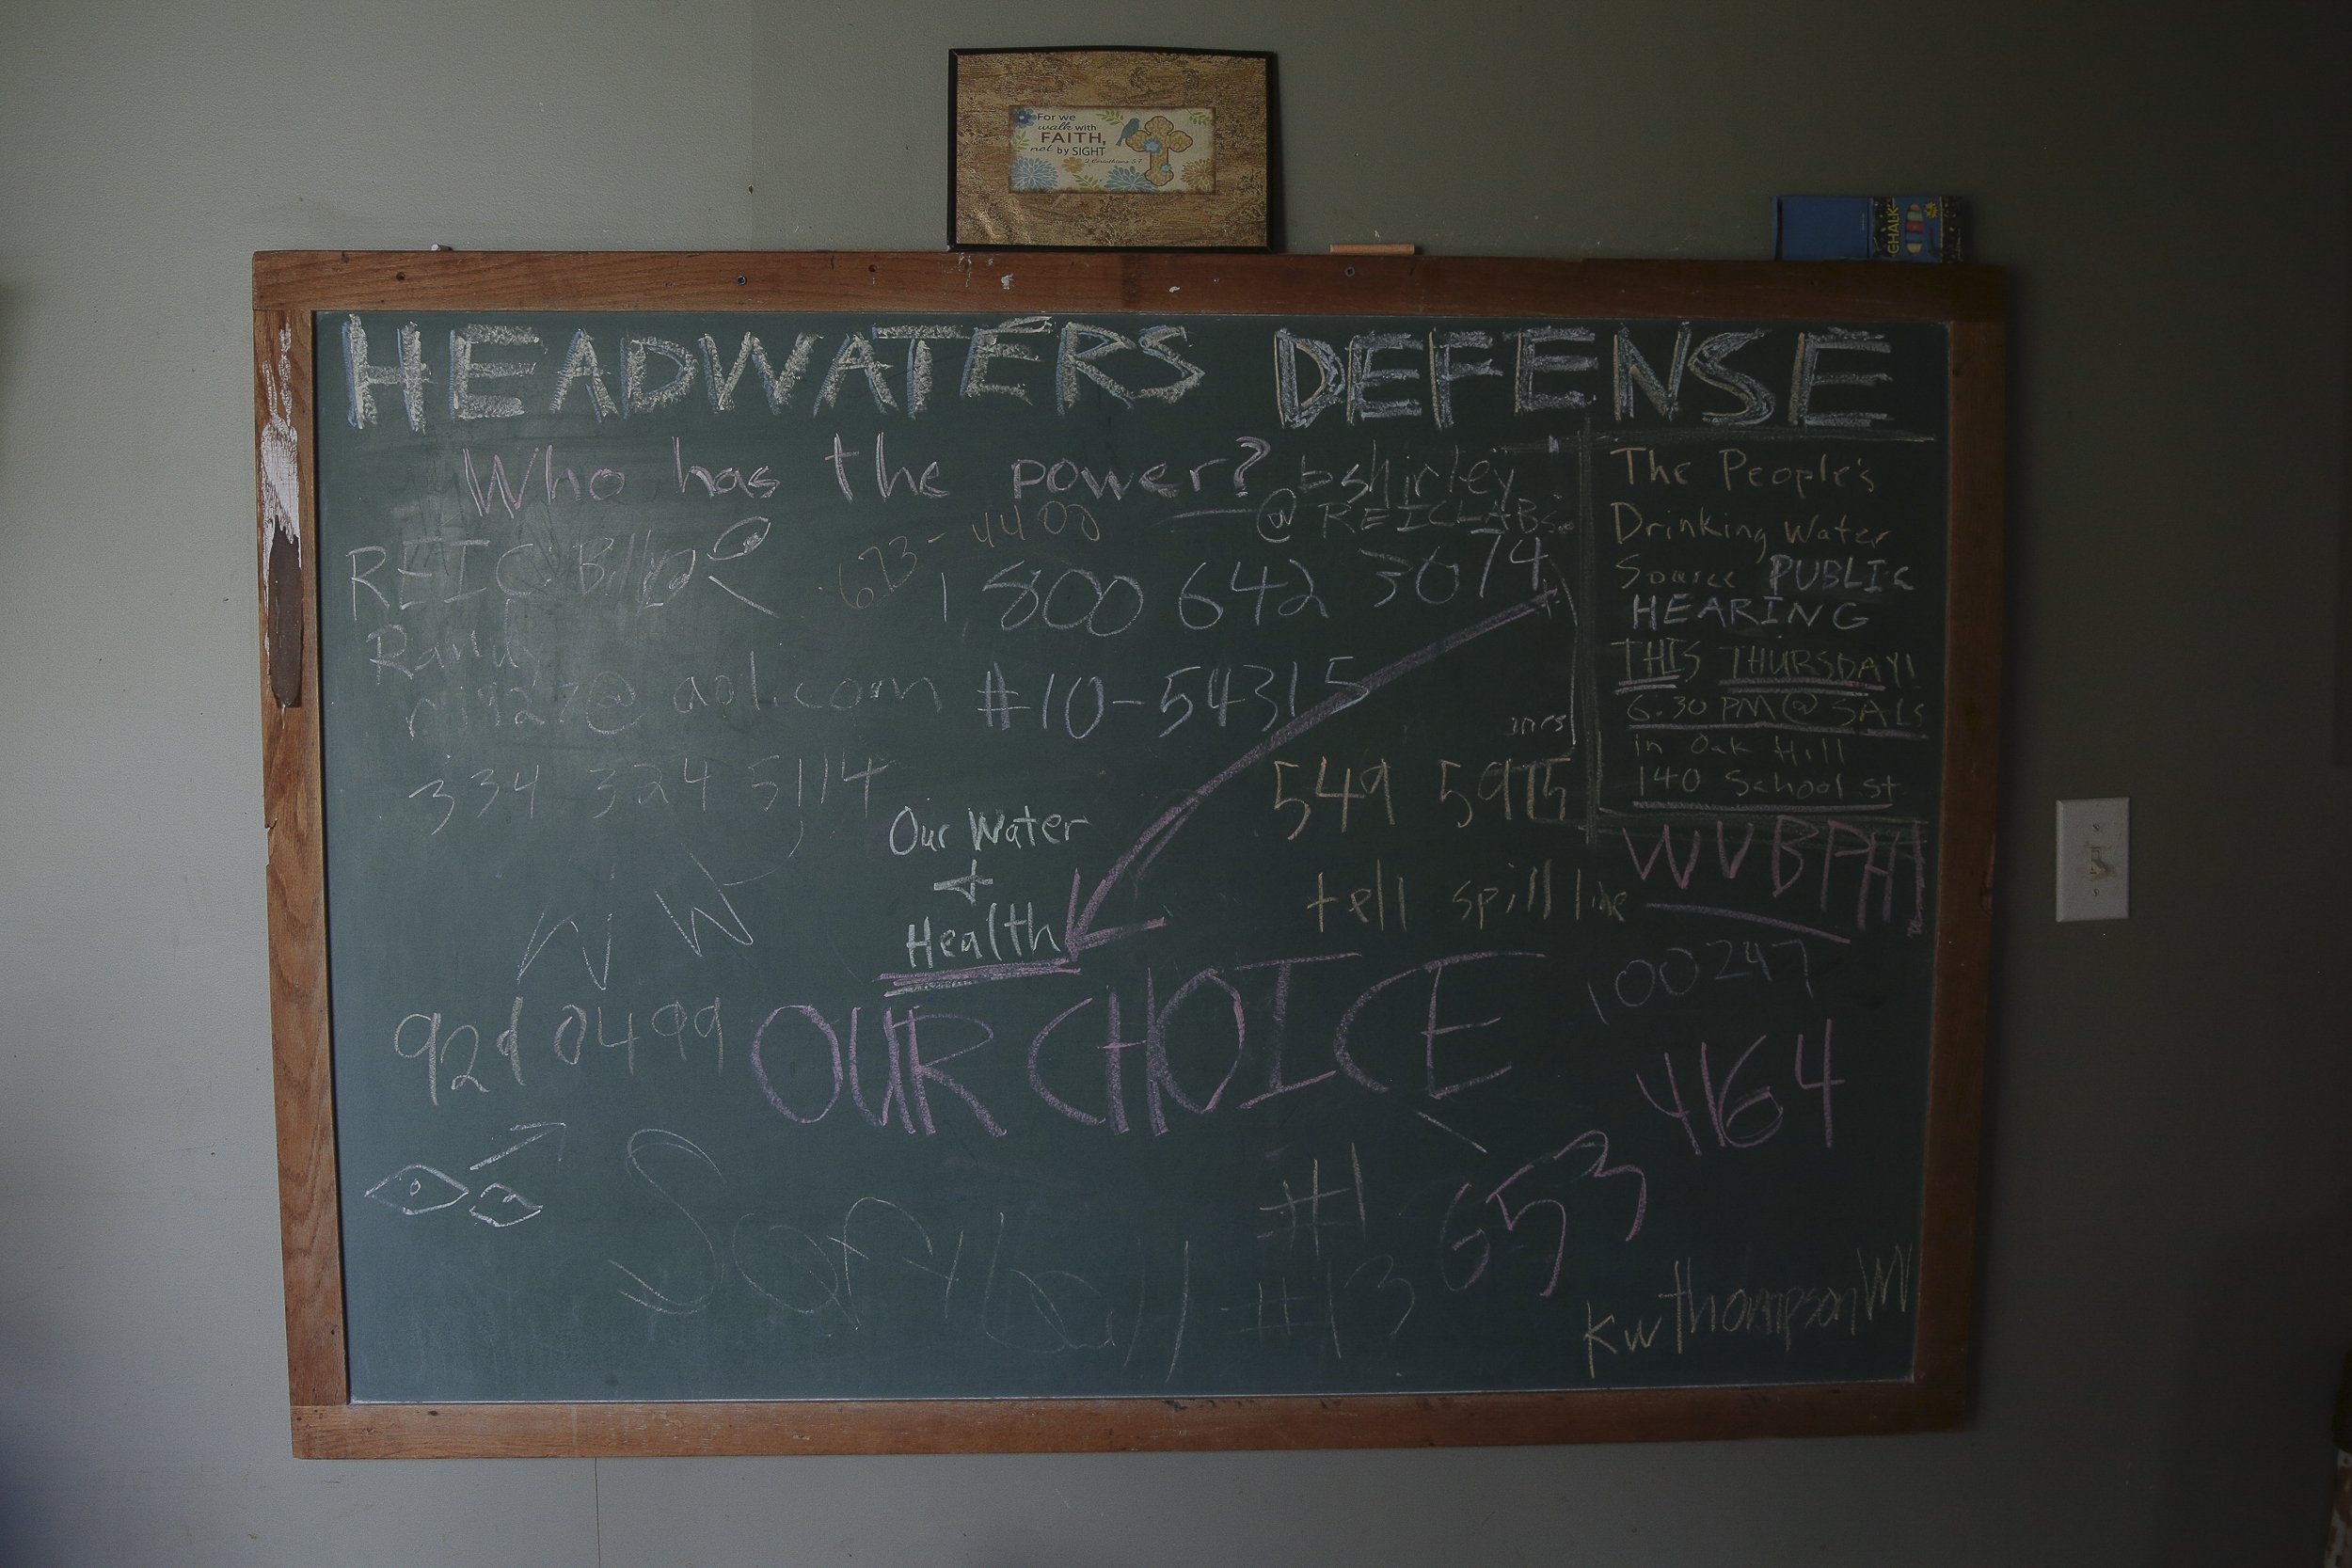 For we
walk with
FAITH,
not by SIGHT
2 Corinthians 5:7
CHALK
HEADWATERS DEFENSE
Who has the power?
bshirley
@ REICLABS.
673-4400
REIC Billy
1 800 642 3074
Randy
@aol.com
#10-54315
334 324 5114
549 5975
tell spill line
Our Water
+
Health
The People's
Drinking Water
Source PUBLIC
HEARING
THIS THURSDAY!
6:30 PM @ SALS
in Oak Hill
140 School st
WVBPH
100247
4164
OUR CHOICE
929 0499
653
#1
#13
kwthompsonWV